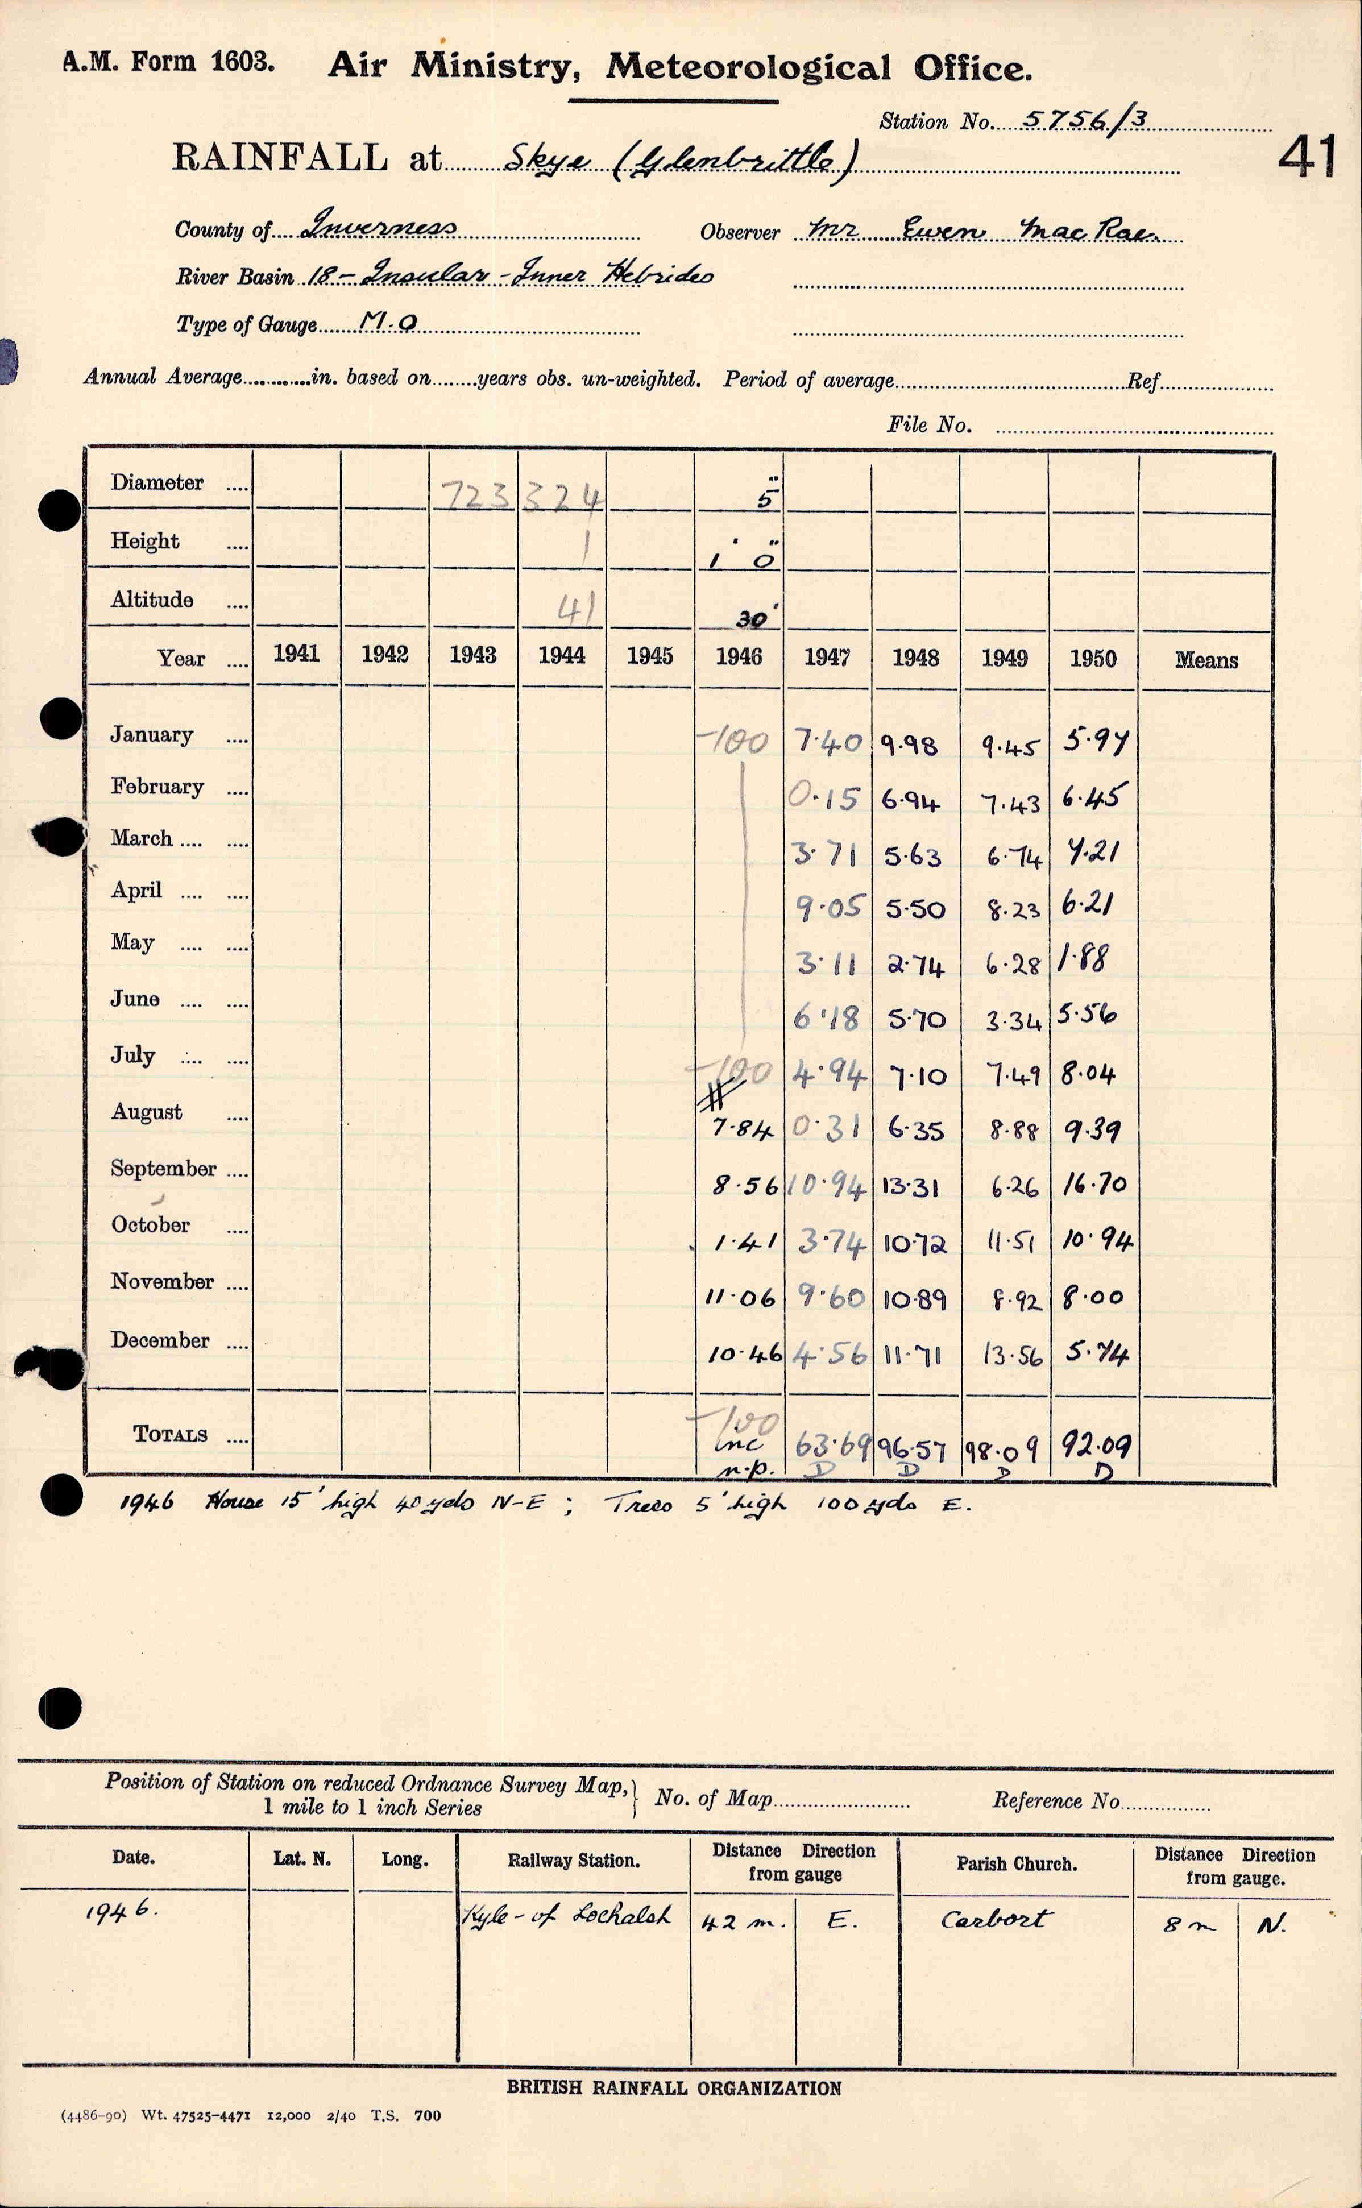 A.M. Form 1603. Air Ministry, Meteorological Office.
Station No. 5756/3
41
RAINFALL at Skye (Glenbrittle)
County of Inverness Observer Mr Ewen MacRae.
River Basin 18 - Insular - Inner Hebrides
Type of Gauge M.O
Annual Average............in. based on........years obs. un-weighted. Period of average.................... Ref....................
File No. ....................
Diameter .... 723 324 5"
Height .... 1 1' 0"
Altitude .... 41 30'
Year .... 1941 1942 1943 1944 1945 1946 1947 1948 1949 1950 Means
January .... -100 7.40 9.98 9.45 5.97
February .... 0.15 6.94 7.43 6.45
March .... .... 3.71 5.63 6.74 7.21
April .... .... 9.05 5.50 8.23 6.21
May .... .... 3.11 2.74 6.28 1.88
June .... .... 6.18 5.70 3.34 5.56
July .... .... -100 4.94 7.10 7.49 8.04
August .... # 7.84 0.31 6.35 8.88 9.39
September .... 8.56 10.94 13.31 6.26 16.70
October .... 1.41 3.74 10.72 11.51 10.94
November .... 11.06 9.60 10.89 8.92 8.00
December .... 10.46 4.56 11.71 13.56 5.74
-100
TOTALS .... inc 63.69 96.57 98.09 92.09
n.p. D D D D
1946 House 15' high 40 yds N-E ; Trees 5' high 100 yds E.
Position of Station on reduced Ordnance Survey Map, } No. of Map.................... Reference No................
1 mile to 1 inch Series
Date. Lat. N. Long. Railway Station. Distance Direction from gauge Parish Church. Distance Direction from gauge.
1946. Kyle-of Lochalsh 42 m. E. Carbort 8 m N.
BRITISH RAINFALL ORGANIZATION
(4486-90) Wt. 47525-4471 12,000 2/40 T.S. 700